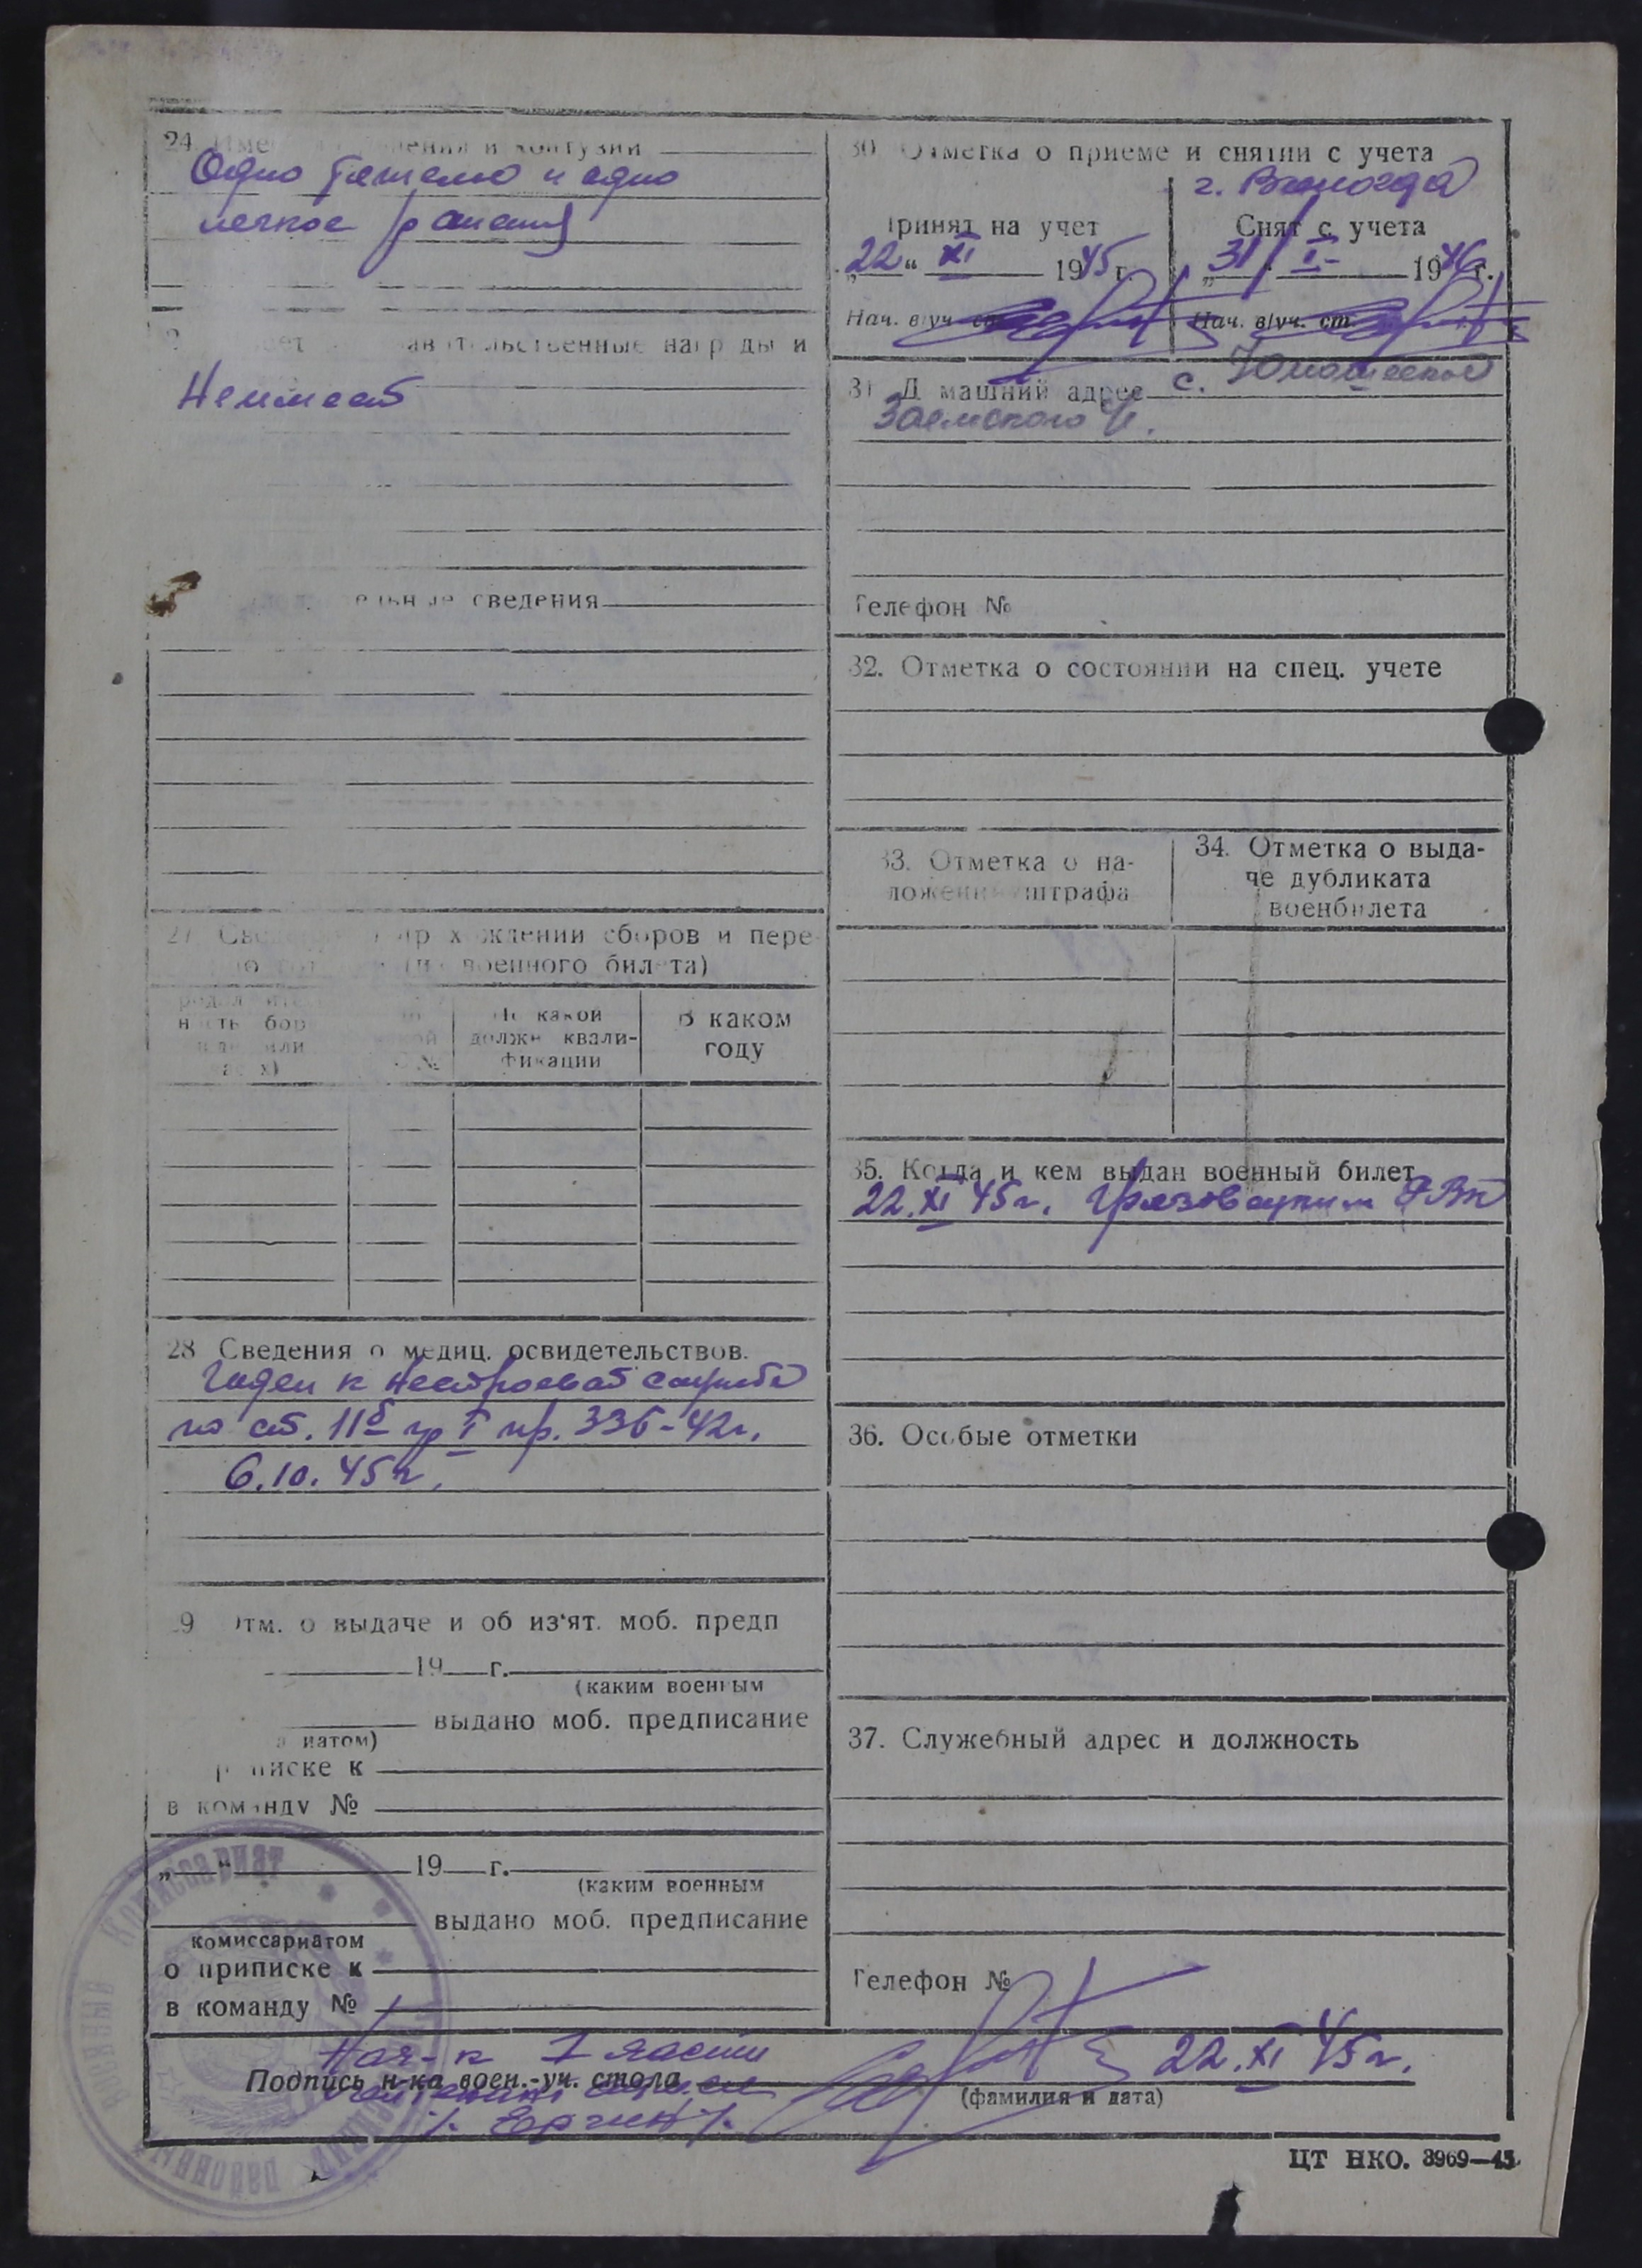 24. Име ения и контузии
Одно тяжелое и одно
легкое ранения
ет ав ит льственные наг р ды и
Неимеет
ельные сведения
27 Све хождении сборов и пере
(из военного билета)
ность бор или
По какой должн квали-фикации
В каком году
28 Сведения о медиц. освидетельствов.
Годен к нестроевой службе
по ст. 11б гр I пр. 336-42г.
6.10.45г.
9 Отм. о выдаче и об из'ят. моб. предп
19 г.
(каким военным
выдано моб. предписание
иатом)
писке к
в команду №
„ “ 19 г.
(каким военным
выдано моб. предписание
комиссариатом
о приписке к
в команду №
30 Отметка о приеме и снятии с учета
г. Вологда
Принят на учет
„22“ XI 1945 г.
Нач. в/уч. ст.
Снят с учета
„31 I 1946 г.
Нач. в/уч. ст.
31 Д машний адрес с.
Телефон №
32. Отметка о состоянии на спец. учете
33. Отметка о на-
ложении штрафа
34. Отметка о выда-
че дубликата
военбилета
35. Когда и кем выдан военный билет
22.XI 45г. Грязовецким РВК
36. Особые отметки
37. Служебный адрес и должность
Телефон №
Нач-к I части
Подпись н-ка воен.-уч. стола
22.XI 45г.
(фамилия и дата)
комиссариат
ЦТ НКО. 3969—45